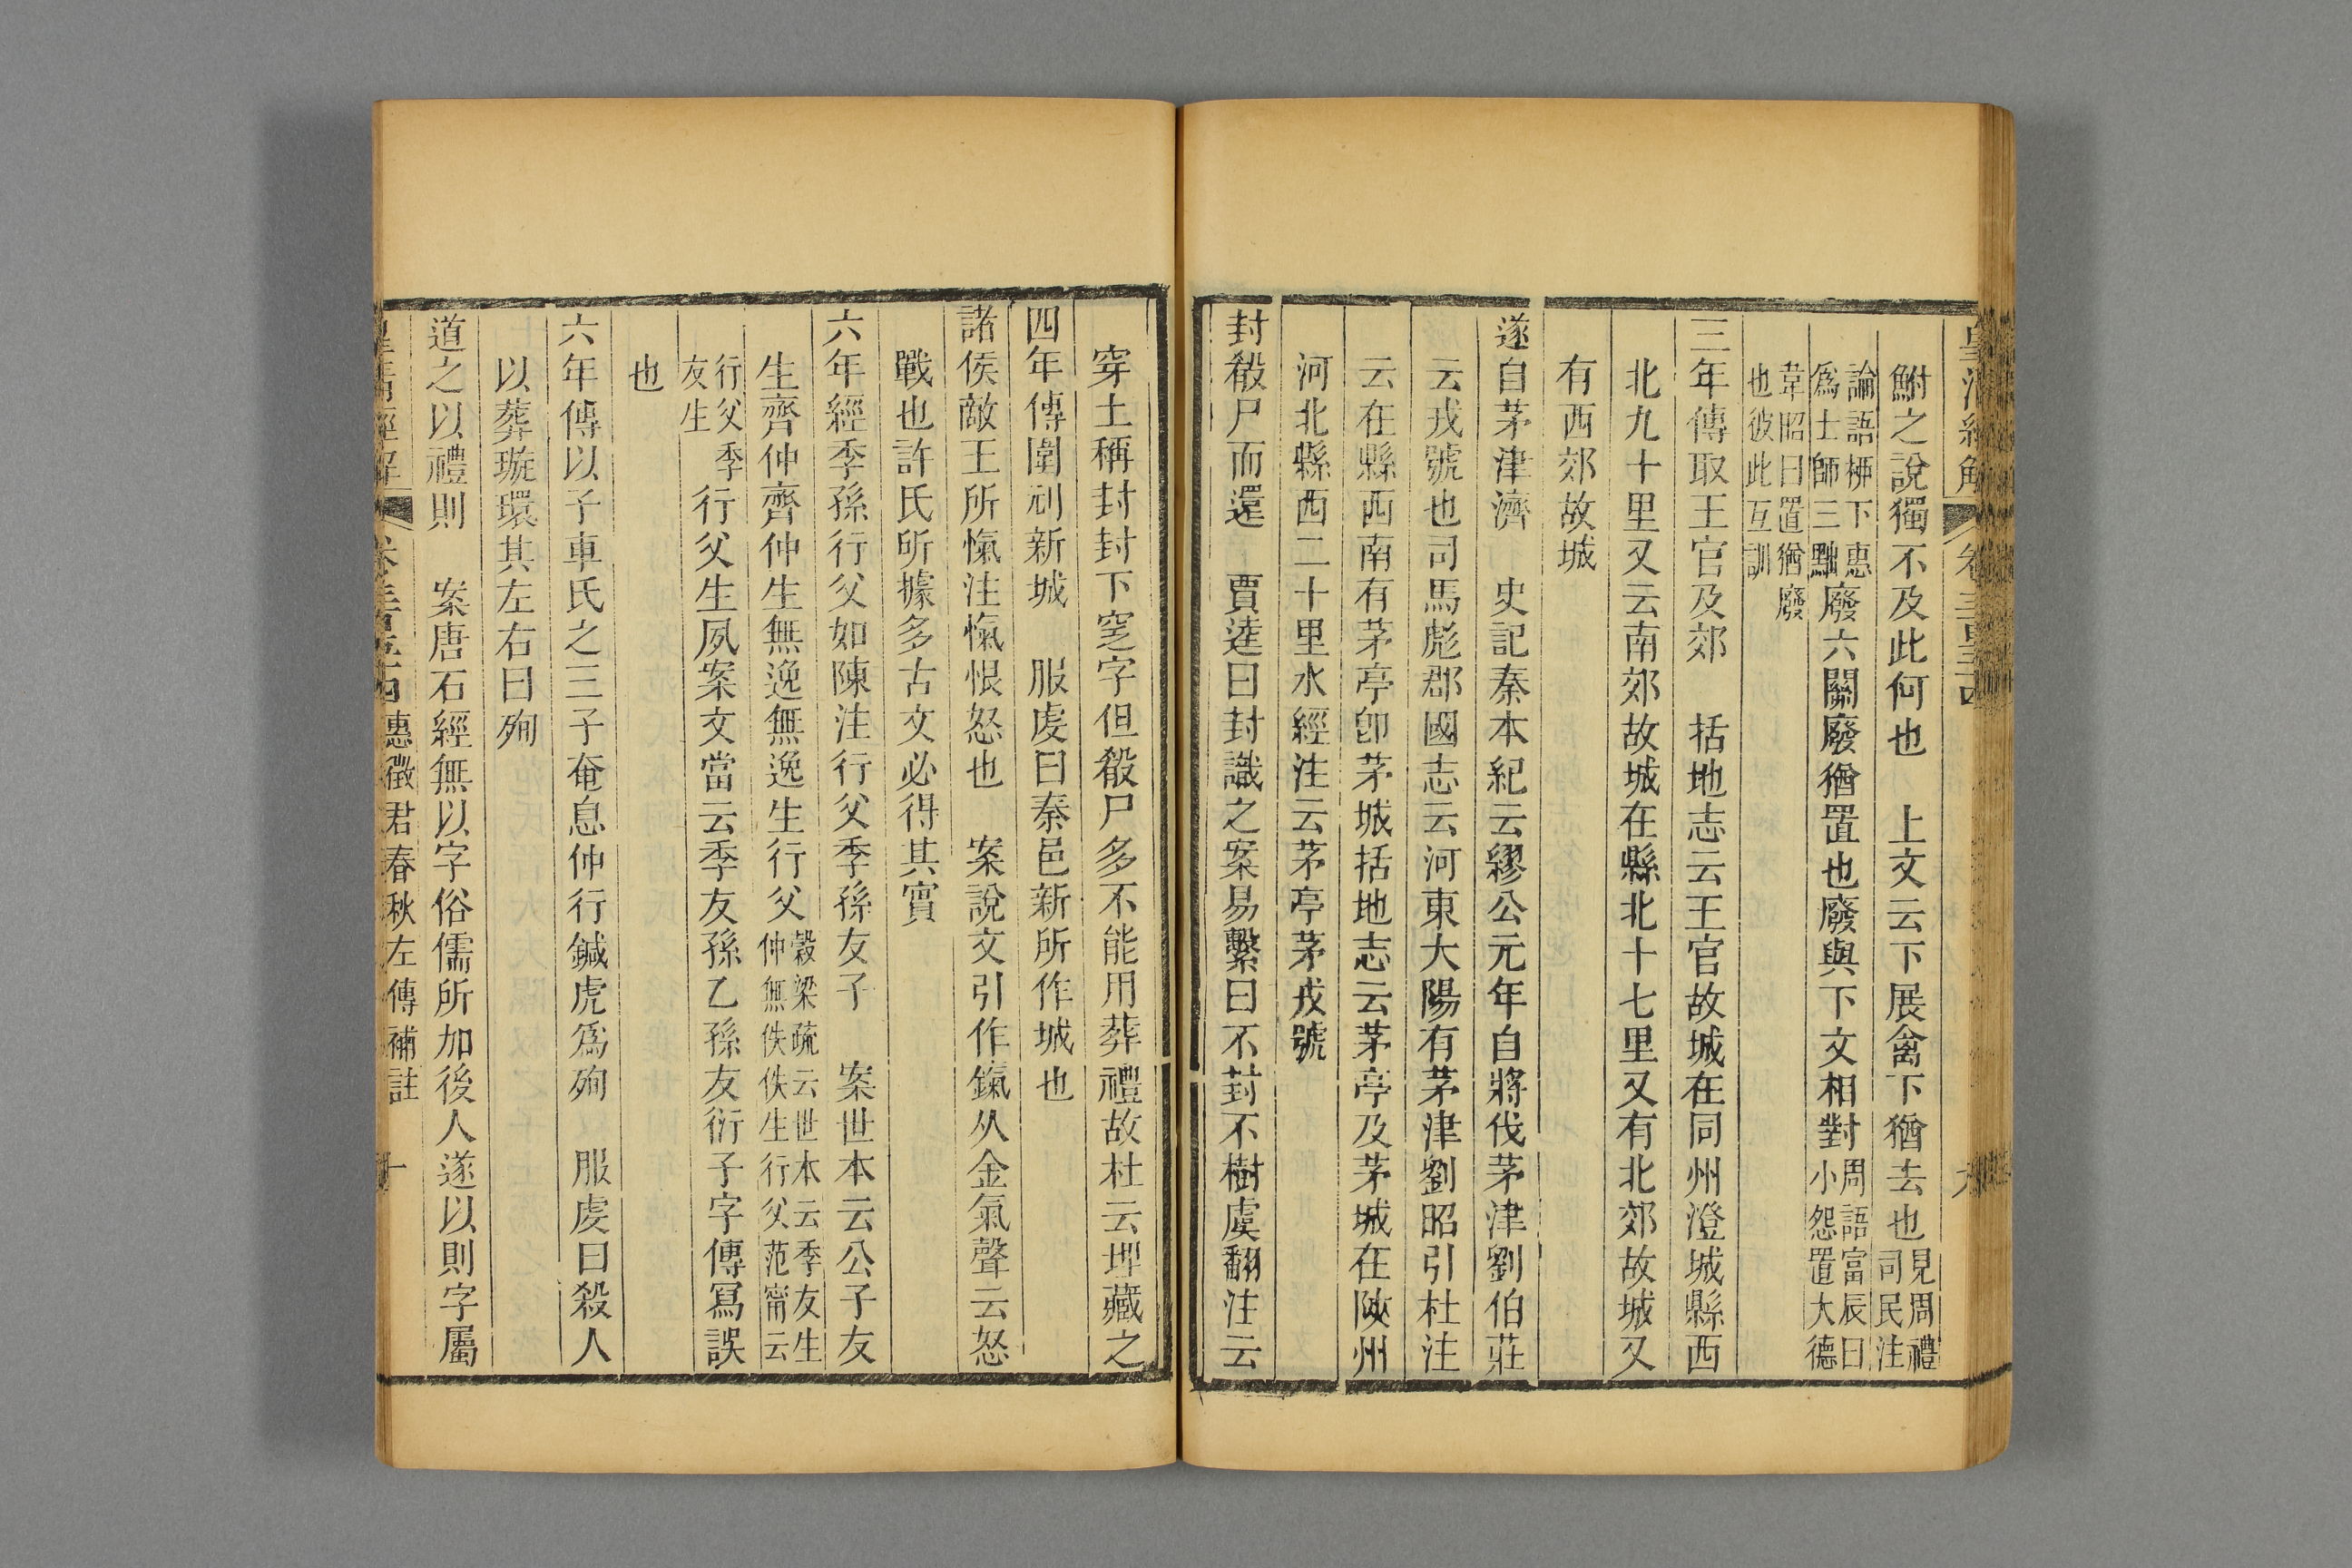 鮒之說獨不及此何也　上文云下展禽下猶去也見周禮司民注
論語柳下惠爲士師三黜廢六關廢猶置也廢與下文相對周語富辰曰小怨置大德
韋昭曰置猶廢也彼此互訓
三年傳取王官及郊　括地志云王官故城在同州澄城縣西
北九十里又云南郊故城在縣北十七里又有北郊故城又
有西郊故城
遂自茅津濟　史記秦本紀云繆公元年自將伐茅津劉伯莊
云戎號也司馬彪郡國志云河東大陽有茅津劉昭引杜注
云在縣西南有茅亭卽茅城括地志云茅亭及茅城在陝州
河北縣西二十里水經注云茅亭茅戎號
封殽尸而還　賈逵曰封識之案易繫曰不封不樹虞翻注云
穿土稱封封下窆字但殽尸多不能用葬禮故杜云埋藏之
四年傳圍刓新城　服虔曰秦邑新所作城也
諸侯敵王所愾注愾恨怒也　案說文引作鎎从金氣聲云怒
戰也許氏所據多古文必得其實
六年經季孫行父如陳注行父季孫友子　案世本云公子友
生齊仲齊仲生無逸無逸生行父穀梁疏云世本云季友生仲無佚佚生行父范甯云
行父季友生行父生夙案文當云季友孫乙孫友衍子字傳寫誤
也
六年傳以子車氏之三子奄息仲行鍼虎爲殉　服虔曰殺人
以葬璇環其左右曰殉
道之以禮則　案唐石經無以字俗儒所加後人遂以則字屬
惠徵君春秋左傳補註　十